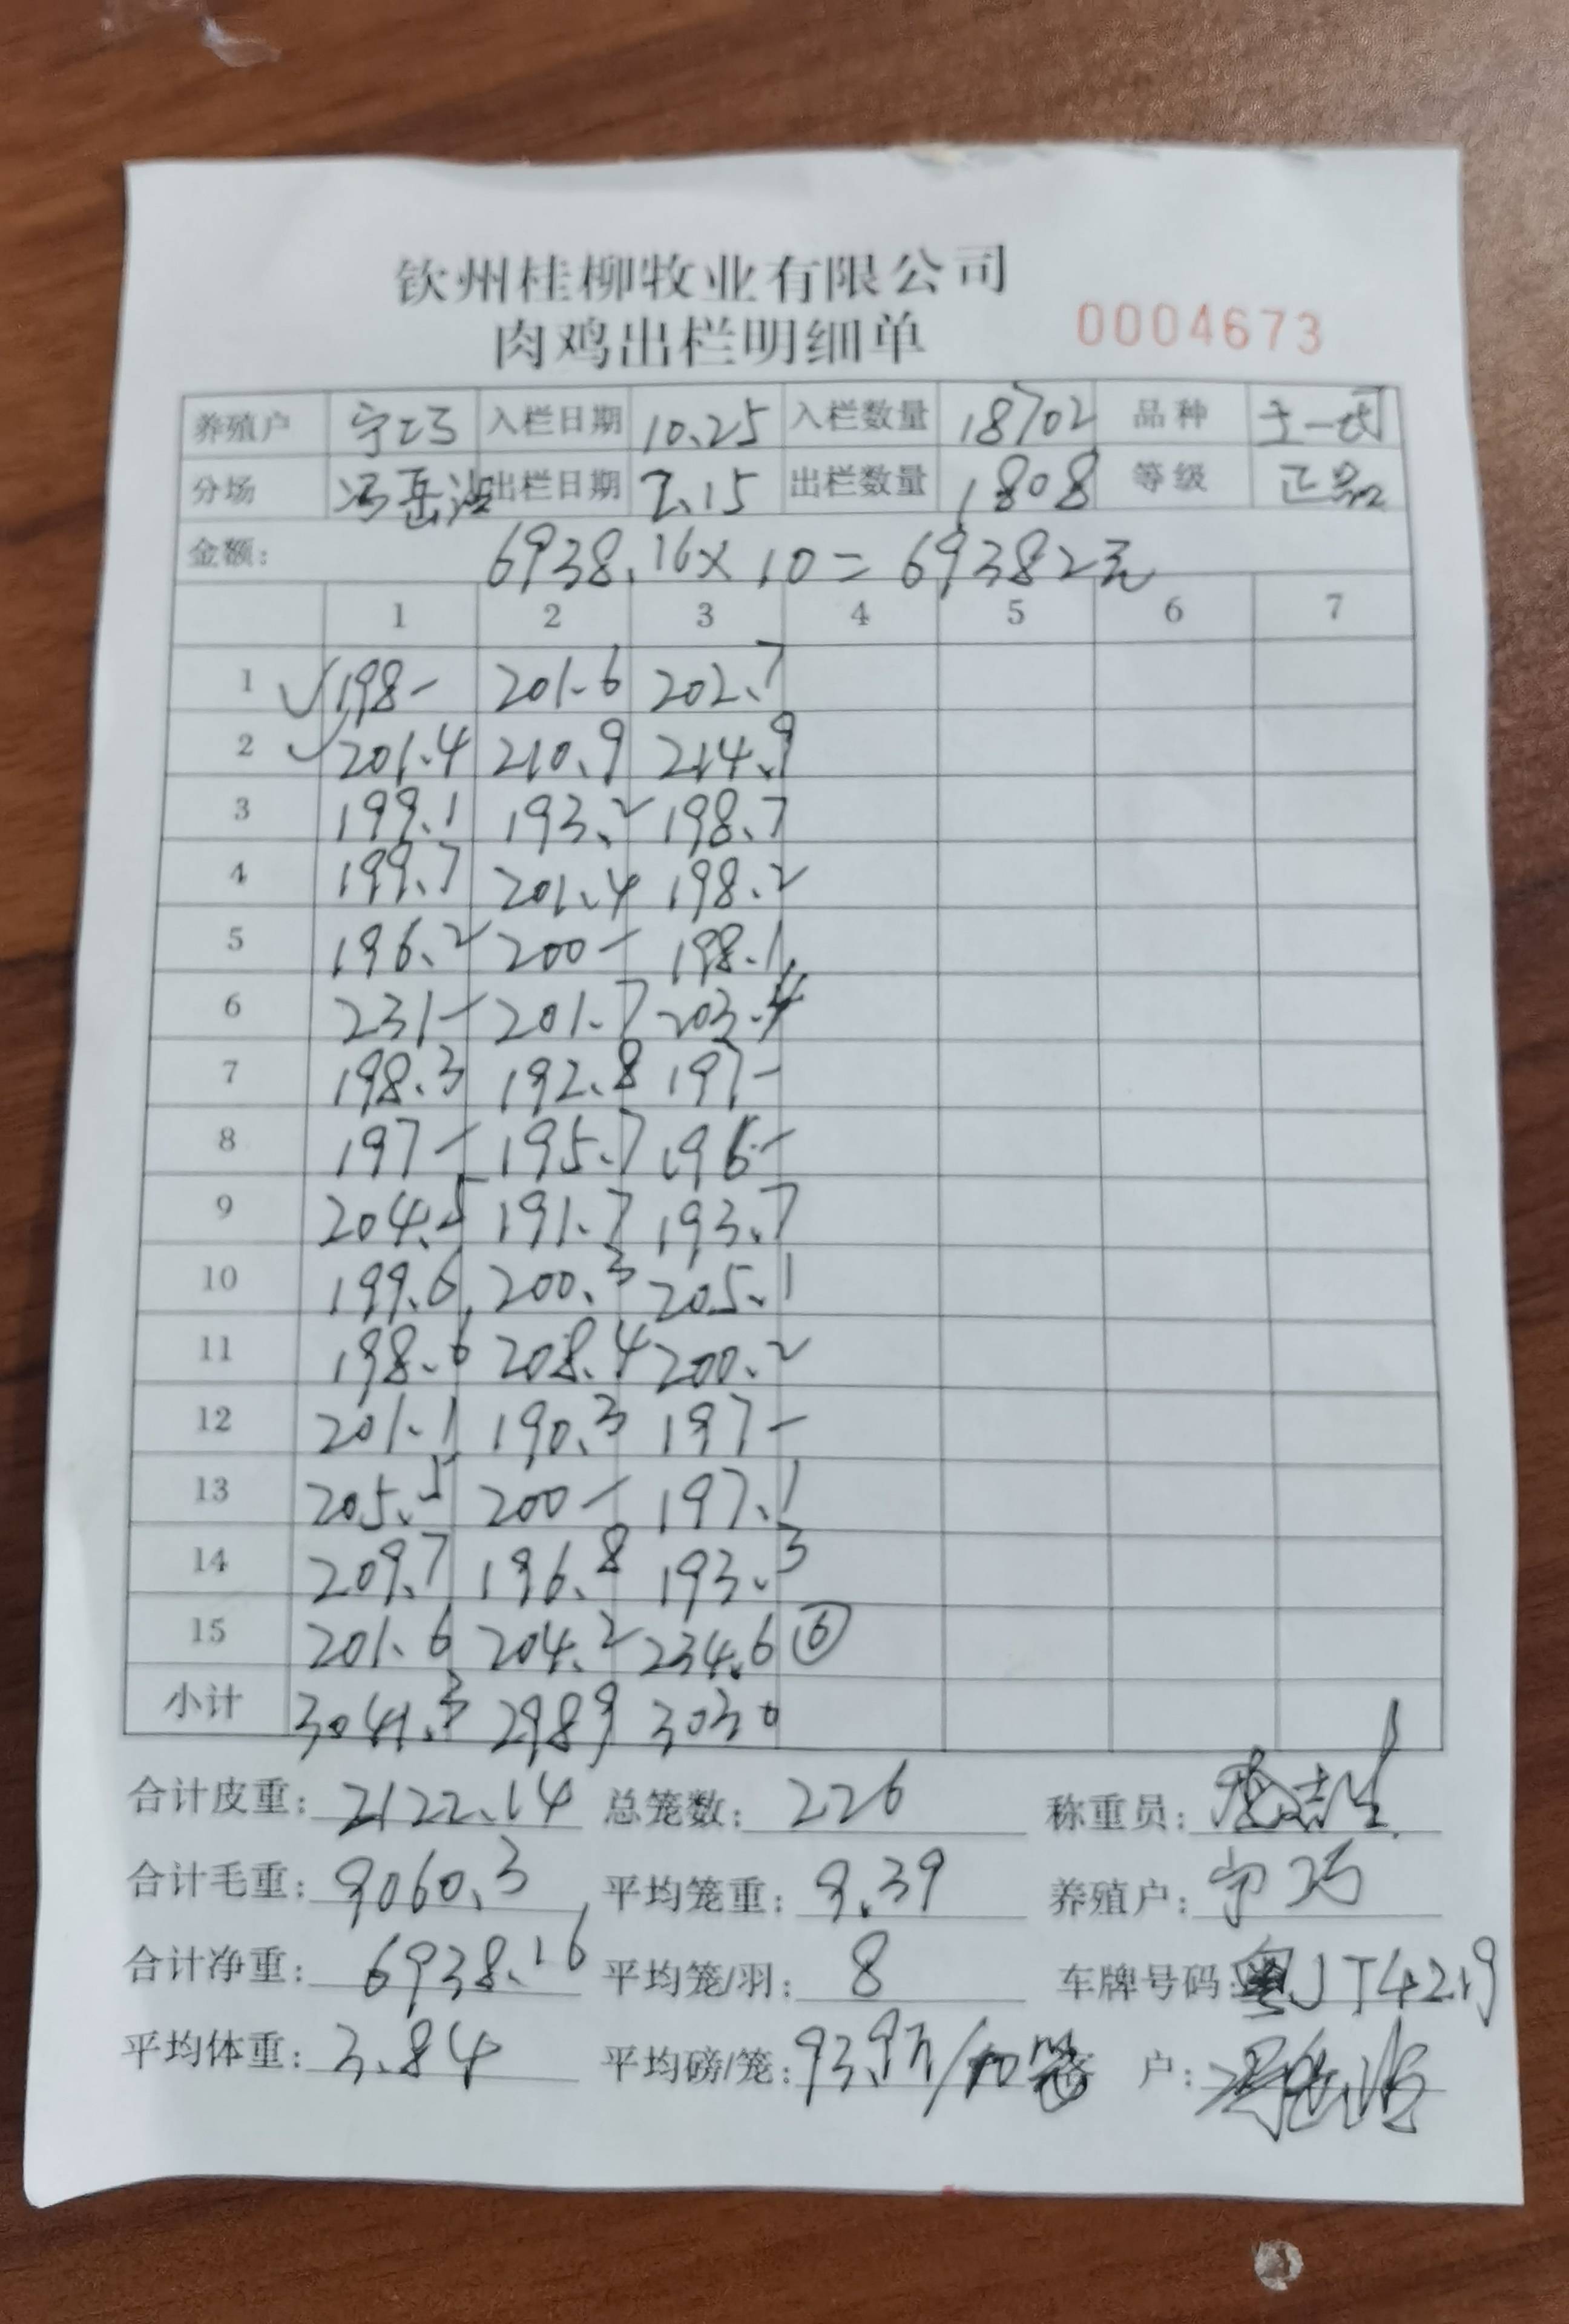 钦州桂柳牧业有限公司
肉鸡出栏明细单 0004673
养殖户 宁巧 入栏日期 10.25 入栏数量 18702 品种
分场 冯岳 出栏日期 2.15 出栏数量 1808 等级 正品
金额: 6938.16×10=69382元
1 2 3 4 5 6 7
1 198- 201.6 202.7
2 201.4 210.9 214.9
3 199.1 193.2 198.7
4 199.7 201.4 198.2
5 196.2 200- 198.1
6 231- 201.7 203.4
7 198.3 192.8 197-
8 197- 195.7 196-
9 204.5 191.7 193.7
10 199.6 200.3 205.1
11 198.6 208.4 200.2
12 201.1 190.3 197-
13 205.5 200- 197.1
14 209.7 196.8 193.3
15 201.6 204.2 234.6 ⑥
小计 3041.3 2989 3030
合计皮重: 2122.14 总笼数: 226 称重员:
合计毛重: 9060.3 平均笼重: 9.39 养殖户: 宁巧
合计净重: 6938.16 平均笼/羽: 8 车牌号码: 粤JT4219
平均体重: 3.84 平均磅/笼: 93.9斤/10笼 户: